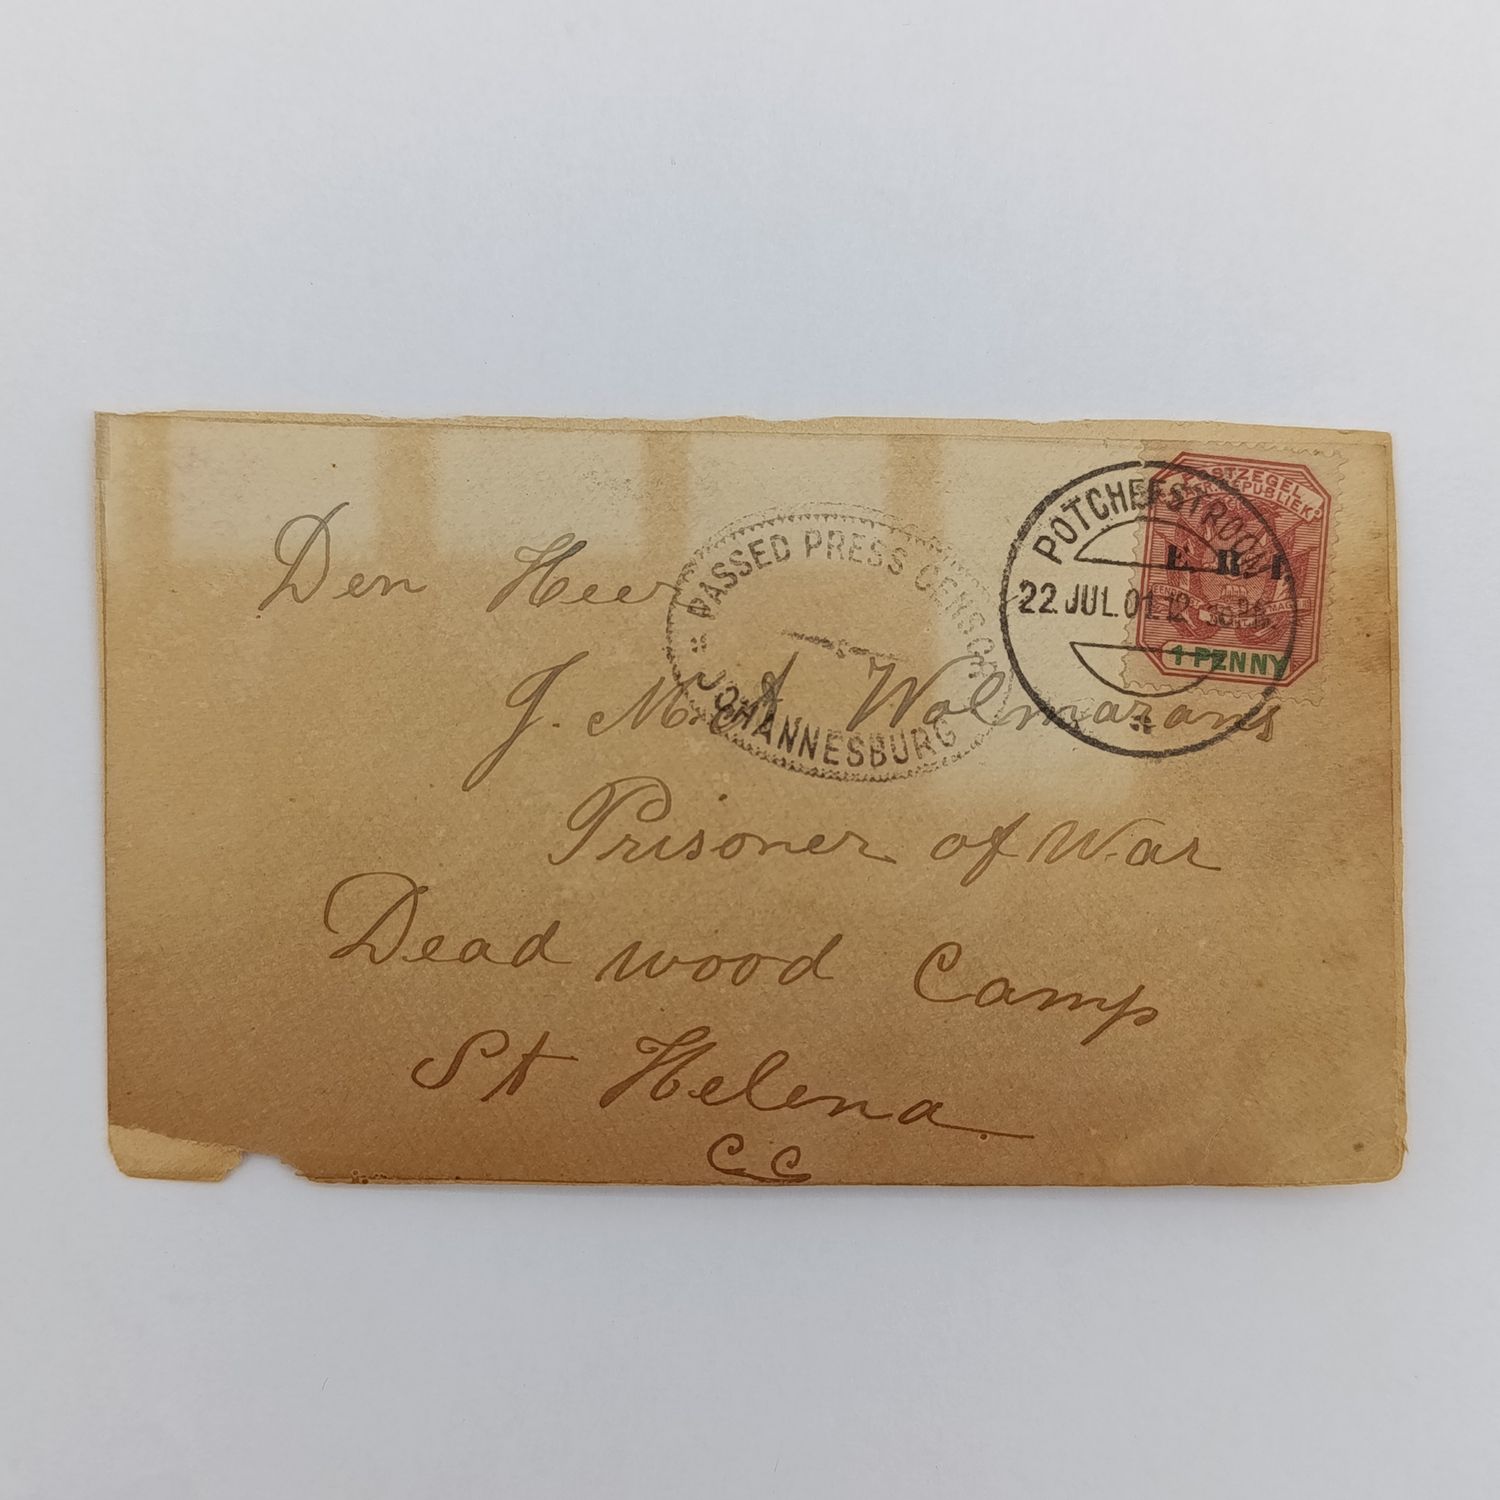 POSTZEGEL
E. R. I.
1 PENNY
POTCHEFSTROOM
22 JUL. 01. 12
PASSED PRESS CENSOR
JOHANNESBURG
Den Heer
J. M. A. Wolmarans
Prisoner of War
Dead wood Camp
St Helena.
C.C